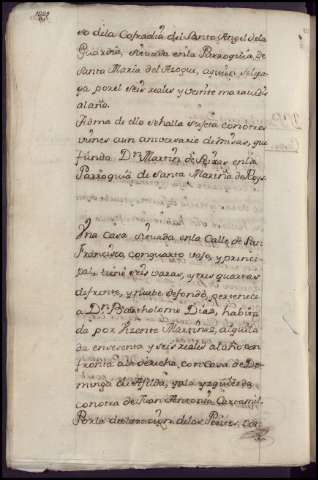 to dela Cofradia del Santo Angel dela
Guardia, situada enla Parroquia, de
Santa Maria del Azogue, aquien se lepa
ga por el seis reales y veinte maravedis
alaño.
Adma de ello sehalla sujeta conotros
vienes aun aniversario demisas, que
fundo Dn. Martin de enla
Parroquia de Santa Marina de
Vna Casa situada enla Calle de San
Francisco, conquarto vajo, y princi
pal, tiene seis varas, y tres quartas
defrente, y nuebe defondo, pertenece
a Dn. Bartholome Diaz, habita
da por Vizente Martinez, alquila
da en sesenta y seis reales alaño con
fronta ala derecha, con Casa de Do
minga de y ala yzquierda
conotra de Juan Antonio
Porla declaracion delos Peritos, Co